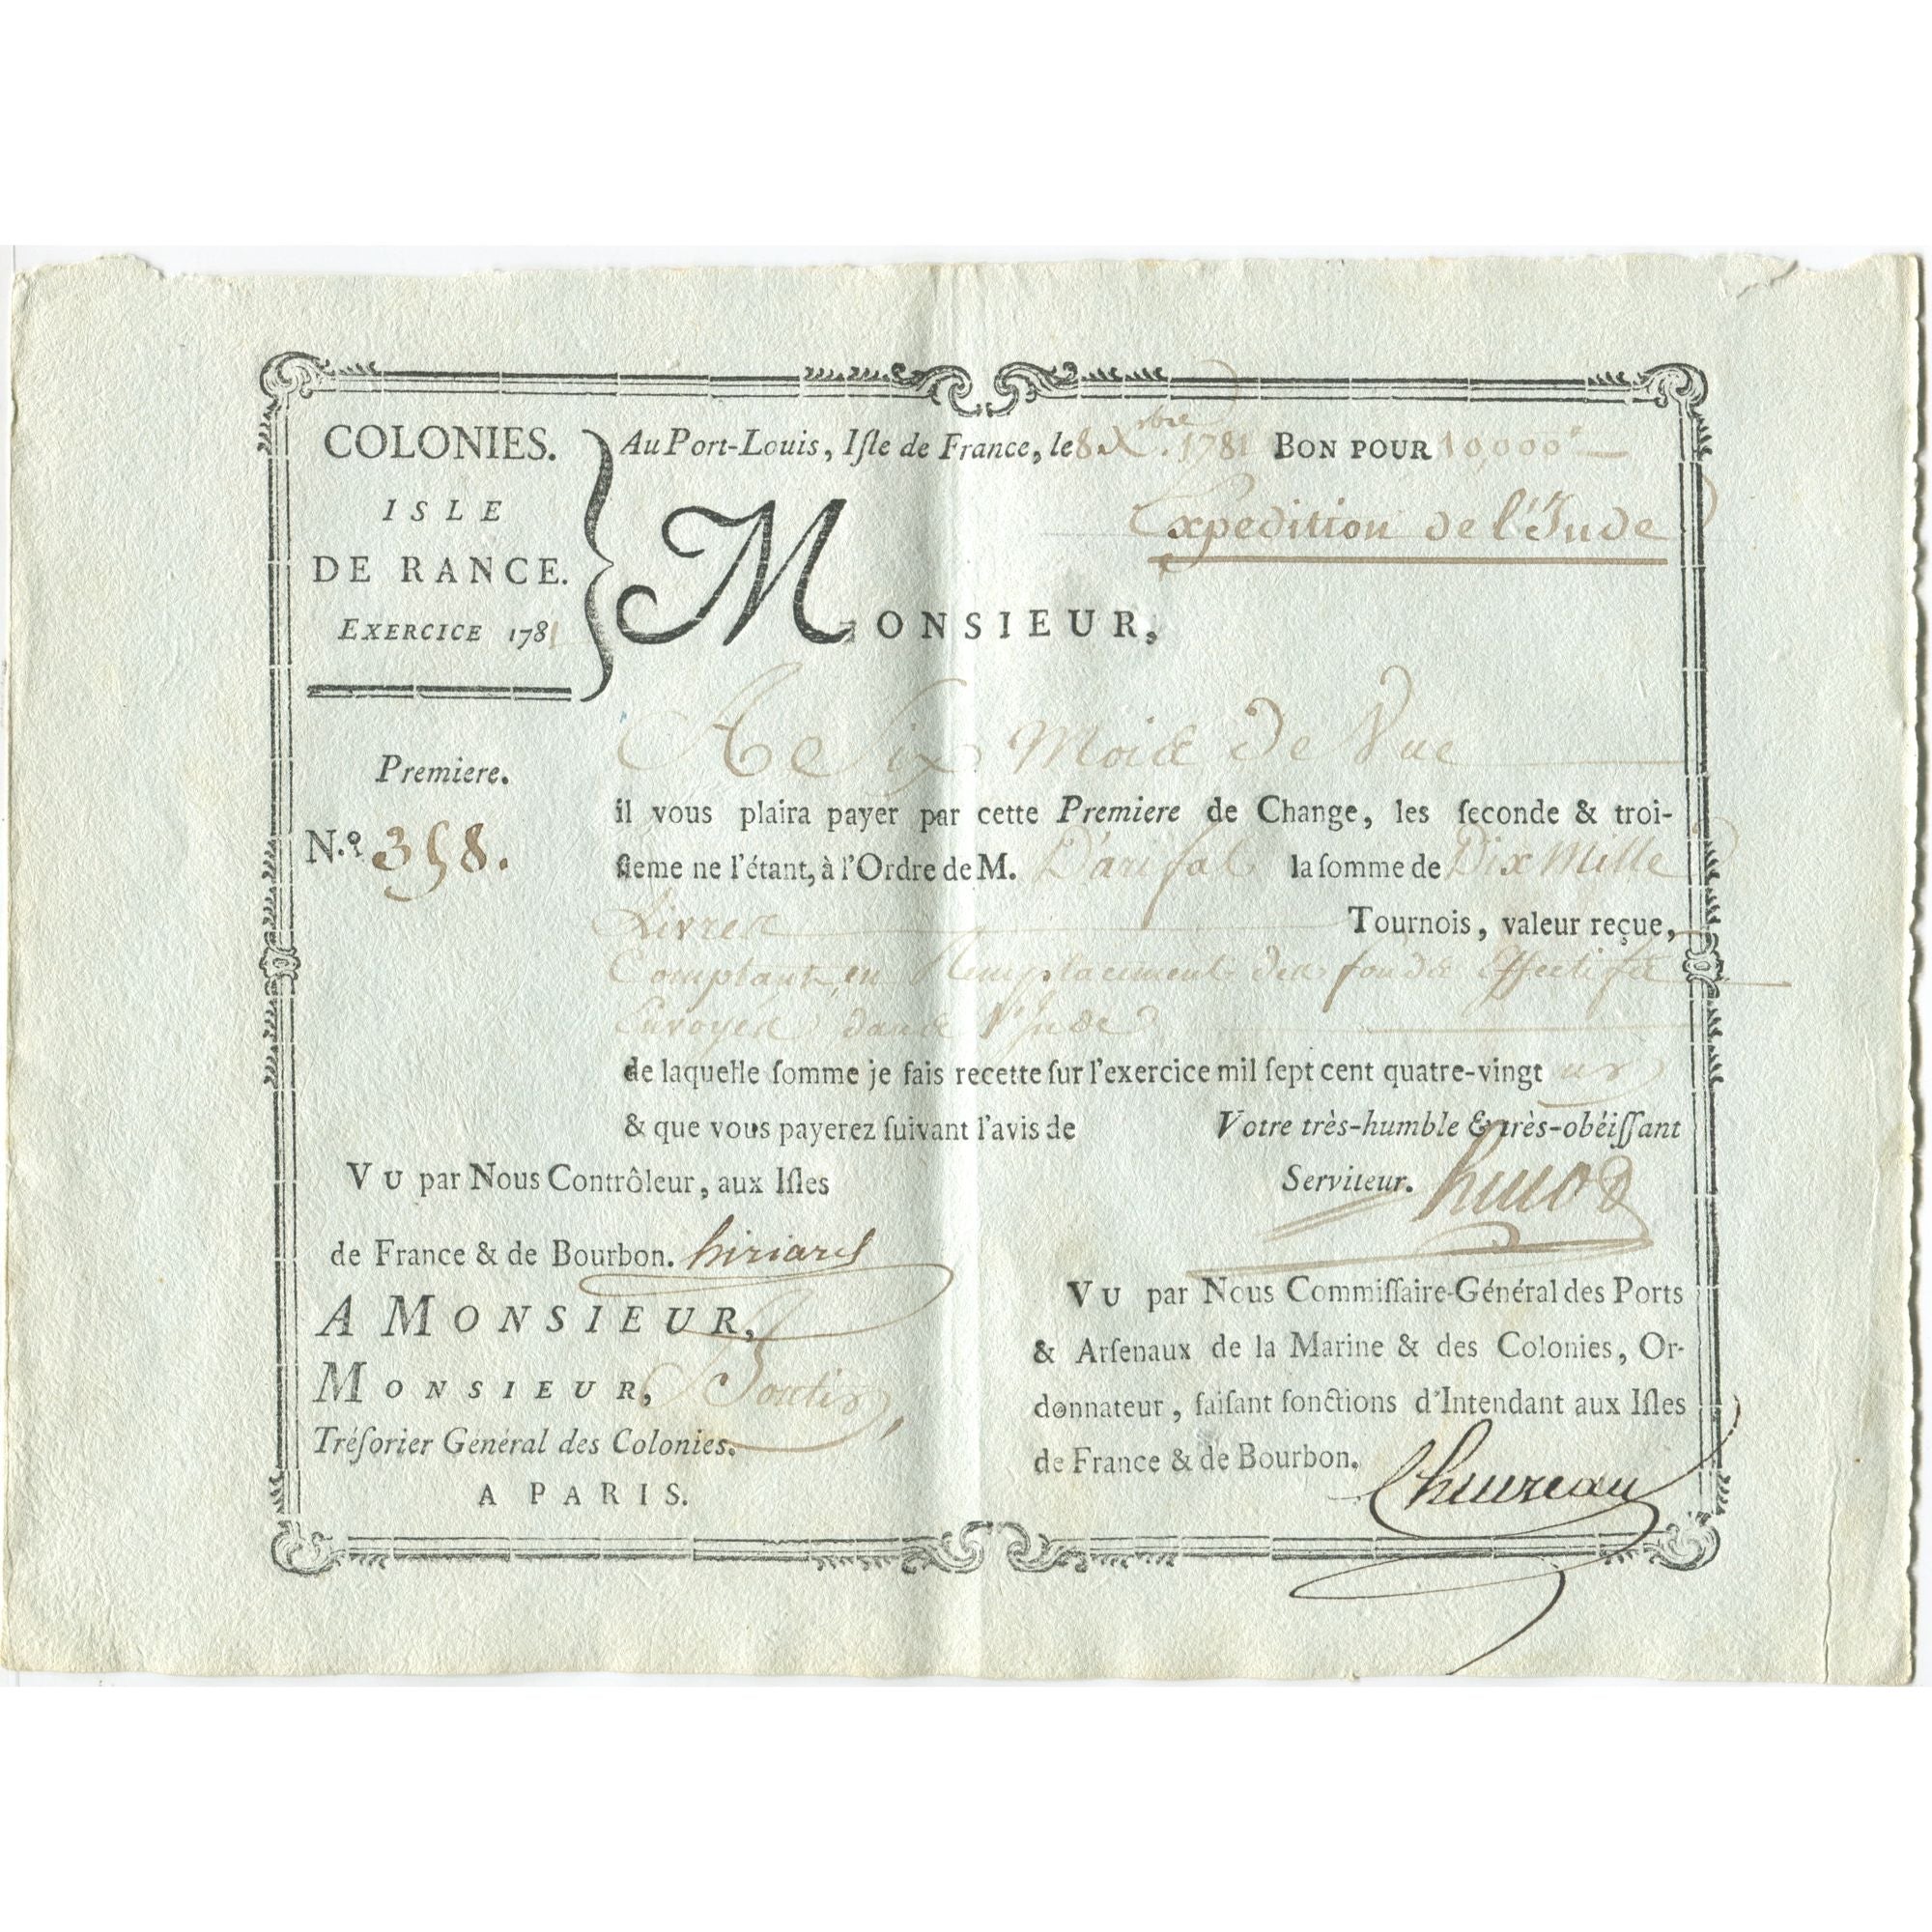 COLONIES.
ISLE
DE RANCE.
EXERCICE 1781
Au Port-Louis, Iſle de France, le 8 Xbre. 1781 BON POUR 10,000
Expedition de l'Inde
MONSIEUR,
A Six Mois de Vue
Premiere.
il vous plaira payer par cette Premiere de Change, les ſeconde & troi-
N.º 358.
ſieme ne l'étant, à l'Ordre de M. Darifat la ſomme de Dix Mille
Livres Tournois, valeur reçue,
Comptant en Remplacement des fonds Effectifs
Envoyés dans l'Inde
de laquelle ſomme je fais recette ſur l'exercice mil ſept cent quatre-vingt un
& que vous payerez ſuivant l'avis de Votre très-humble & très-obéiſſant
Serviteur.
VU par Nous Contrôleur, aux Iſles
de France & de Bourbon. hiriart
A MONSIEUR,
MONSIEUR, Boutin,
Tréſorier Général des Colonies.
A PARIS.
VU par Nous Commiſſaire-Général des Ports
& Arſenaux de la Marine & des Colonies, Or-
donnateur, faiſant fonctions d'Intendant aux Iſles
de France & de Bourbon.
Chevreau